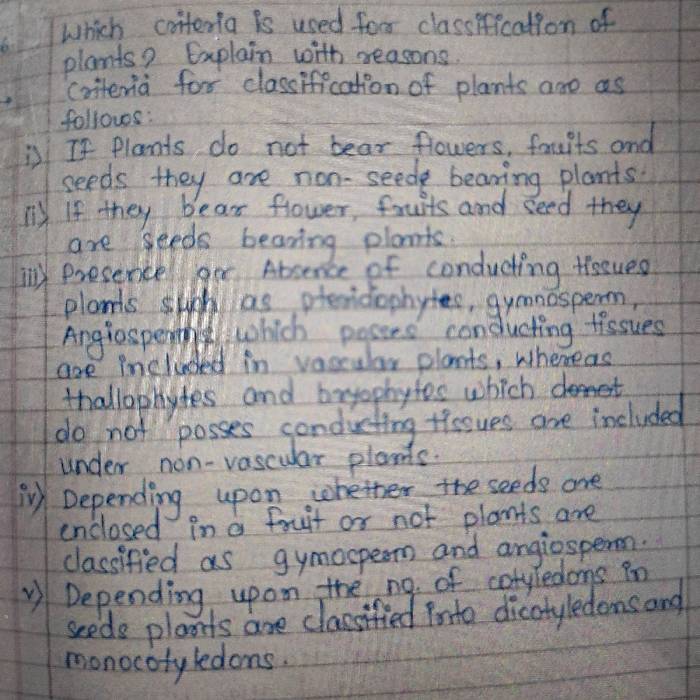 6. Which criteria is used for classification of
plants? Explain with reasons.
→ Criteria for classification of plants are as
follows:
i) If Plants do not bear flowers, fruits and
seeds they are non-seeds bearing plants.
ii) If they bear flower, fruits and seed they
are seeds bearing plants.
iii) Presence or Absence of conducting tissues
plants such as pteridophytes, gymnosperm,
Angiosperms which posses conducting tissues
are included in vascular plants, whereas
thallophytes and bryophytes which
do not posses conducting tissues are included
under non-vascular plants.
iv) Depending upon whether the seeds are
enclosed in a fruit or not plants are
classified as gymosperm and angiosperm.
v) Depending upon the no. of cotyledons in
seeds plants are classified into dicotyledons and
monocotyledons.